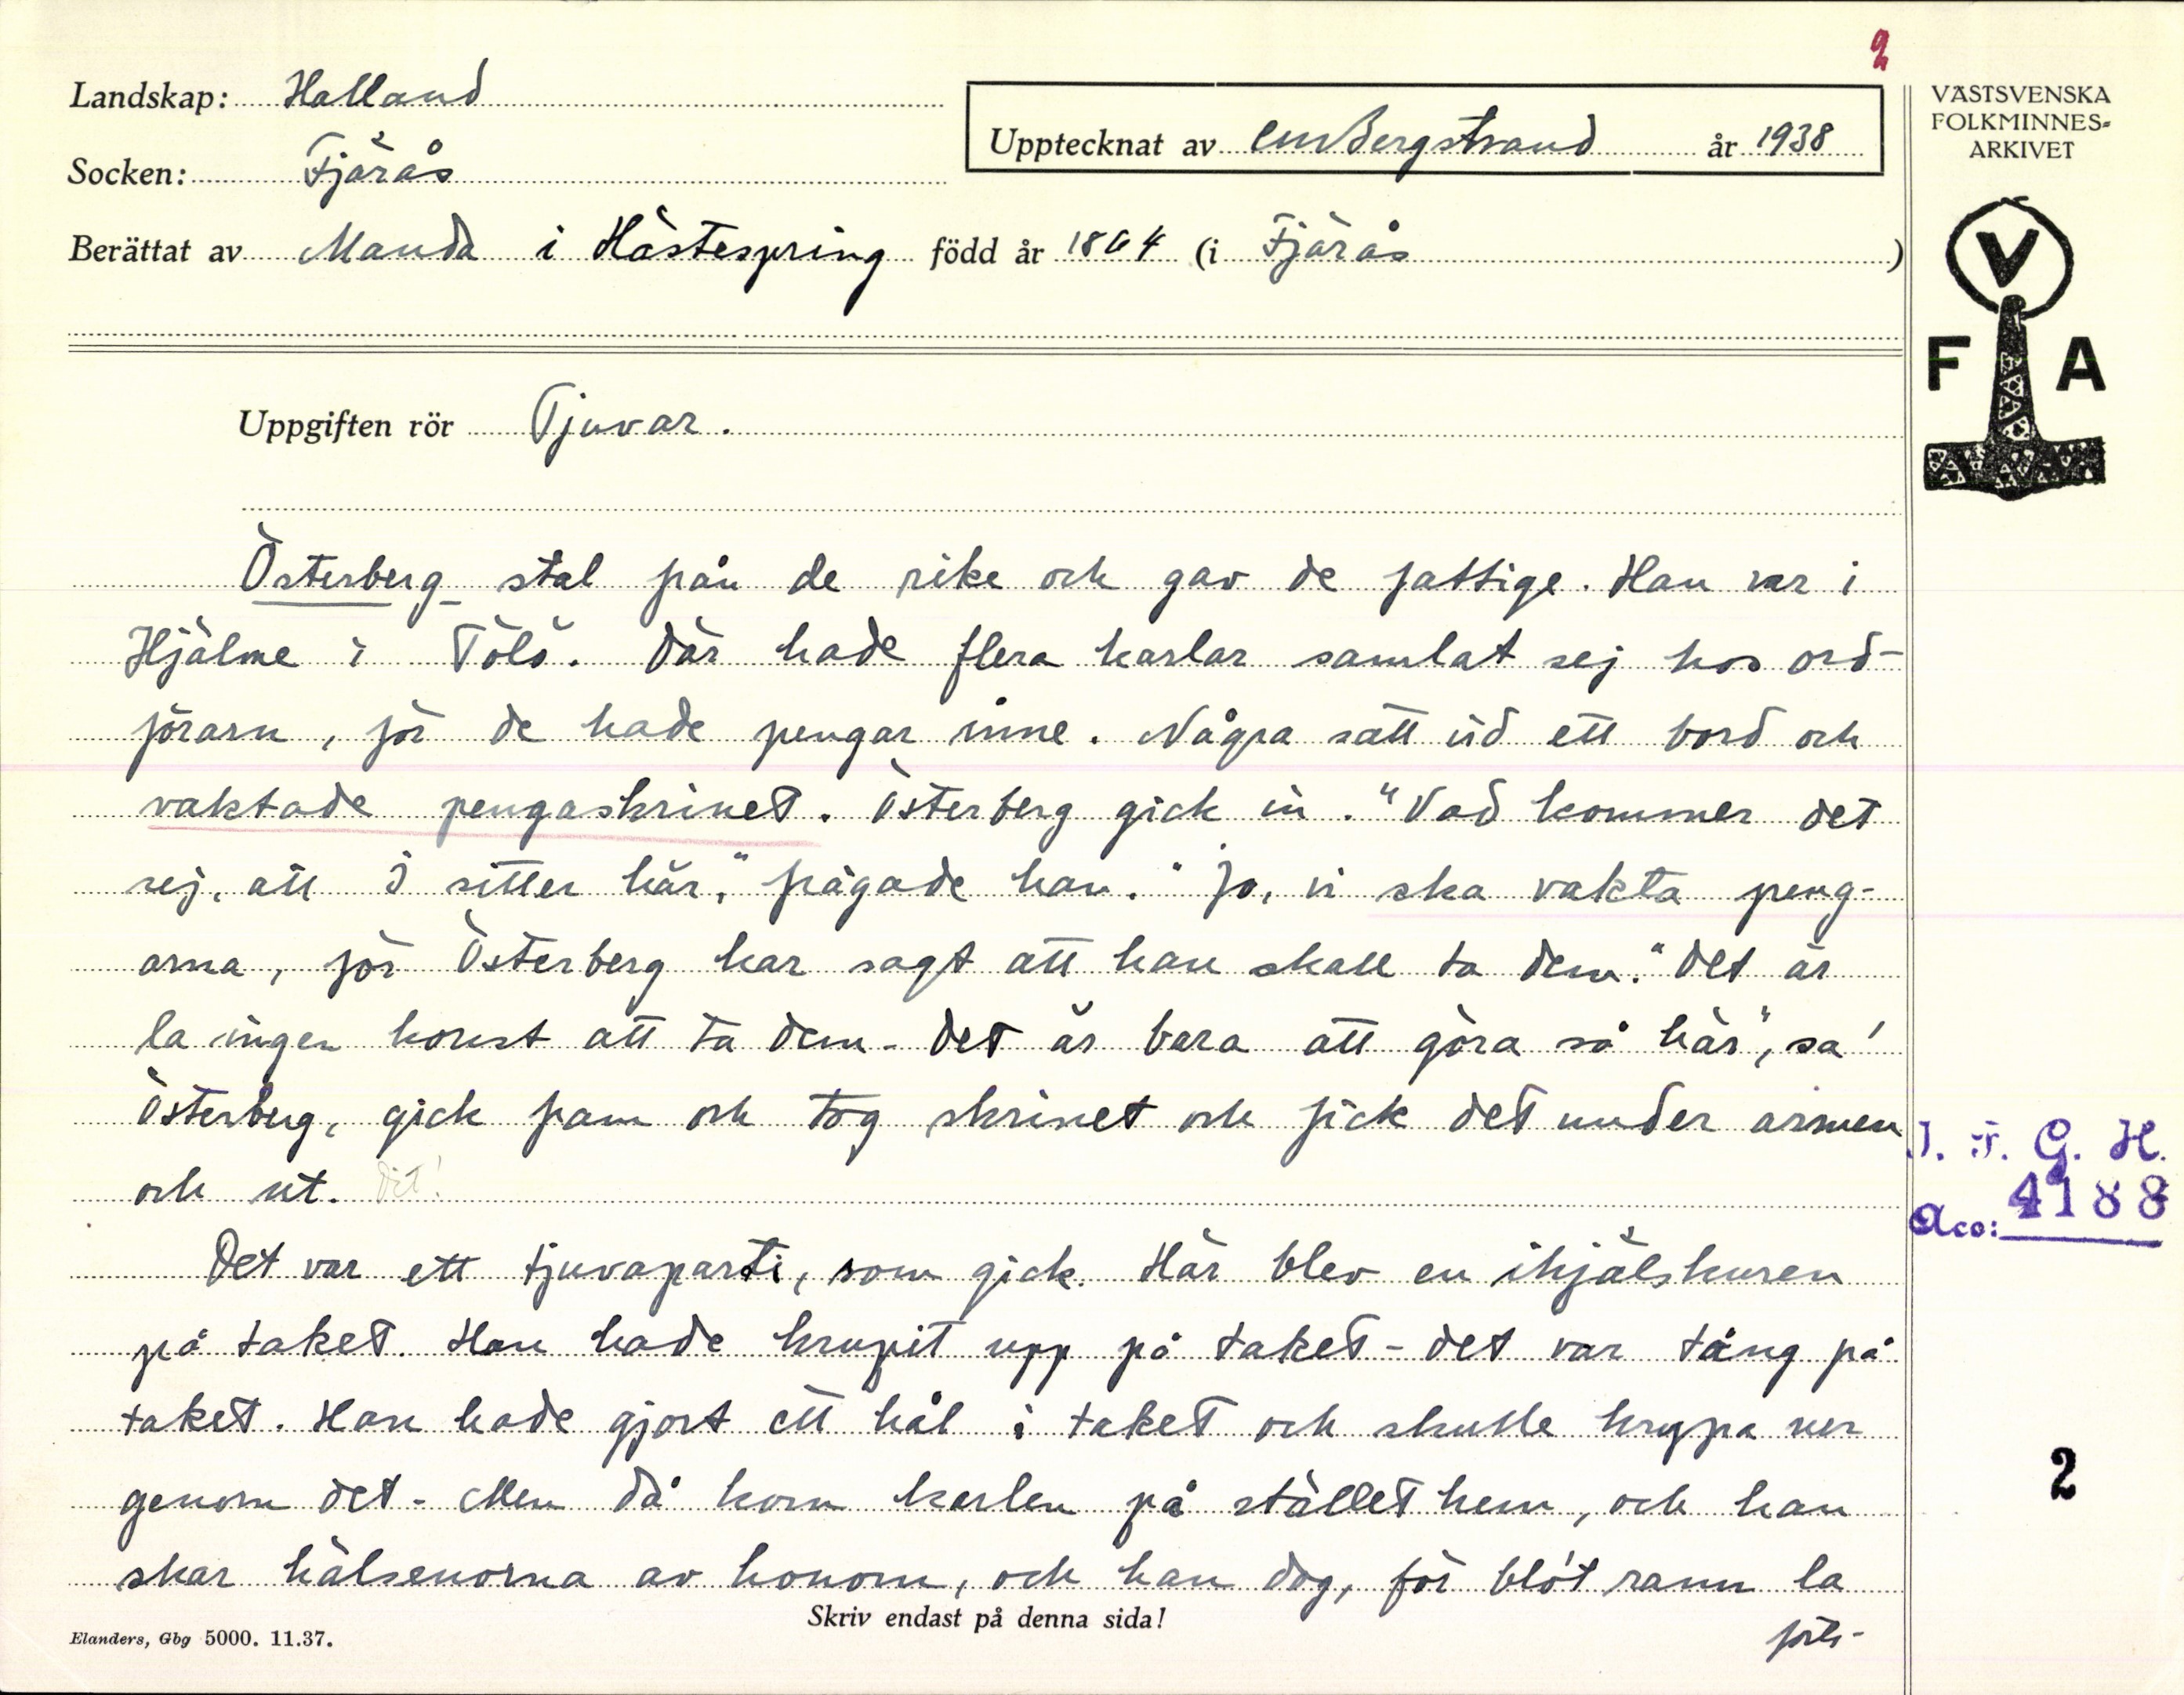 2
Landskap: Halland
Socken: Fjärås
Upptecknat av CMBergstrand år 1938
Berättat av Manda i Hästespring född år 1864 (i Fjärås)
VÄSTSVENSKA
FOLKMINNES-
ARKIVET
V
F A
Uppgiften rör Tjuvar.
Österberg stal från de rike och gav de fattige. Han var i
Hjälme i Tölö. Där hade flera karlar samlat sej hos ord-
förarn, för de hade pengar inne. Några satt vid ett bord och
vaktade pengaskrinet. Österberg gick in. "Vad kommer det
sej, att I sitter här," frågade han. "Jo, vi ska vakta peng-
arna, för Österberg har sagt att han skall ta dem." Det är
la ingen konst att ta dem - det är bara att göra så här", sa'
Österberg, gick fram och tog skrinet och fick det under armen
och ut. Dit!
Det var ett tjuvaparti, som gick. Här blev en ihjälskuren
på taket. Han hade krupit upp på taket - det var tång på
taket. Han hade gjort ett hål i taket och skulle krypa ner
genom det. Men då kom karlen på stället hem, och han
skar hälsenorna av honom, och han dog, för blót rann la
forts-
Skriv endast på denna sida!
Elanders, Gbg 5000. 11.37.
I. F. G. H.
Acc: 4188
2